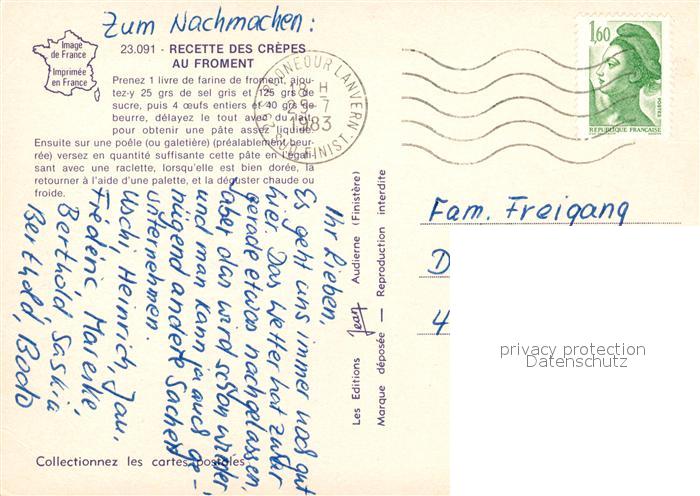 Zum Nachmachen:
Image
de France
Imprimée
en France
23.091 - RECETTE DES CRÊPES
AU FROMENT
Prenez 1 livre de farine de froment, ajou-
tez-y 25 grs de sel gris et 125 grs de
sucre, puis 4 œufs entiers et 40 grs de
beurre, délayez le tout avec du lait
pour obtenir une pâte assez liquide.
Ensuite sur une poêle (ou galetière) (préalablement beur-
rée) versez en quantité suffisante cette pâte en l'égali-
sant avec une raclette, lorsqu'elle est bien dorée, la
retourner à l'aide d'une palette, et la déguster chaude ou
froide.
Ihr Lieben,
Es geht uns immer noch gut
hier. Das Wetter hat zwar
gerade etwas nachgelassen,
aber das wird schon wieder,
und man kann ja auch ge-
nügend andere Sachen
unternehmen.
Uschi, Heinrich, Jan,
Frédéric, Mareike,
Berthold, Saskia
Berthold, Bodo
Collectionnez les cartes postales
Les Editions Jean Audierne (Finistère)
Marque déposée — Reproduction interdite
PLONEOUR LANVERN
18 H
29-7
1983
FINIST.
1,60
POSTES
REPUBLIQUE FRANÇAISE
Fam. Freigang
D
4
privacy protection
Datenschutz